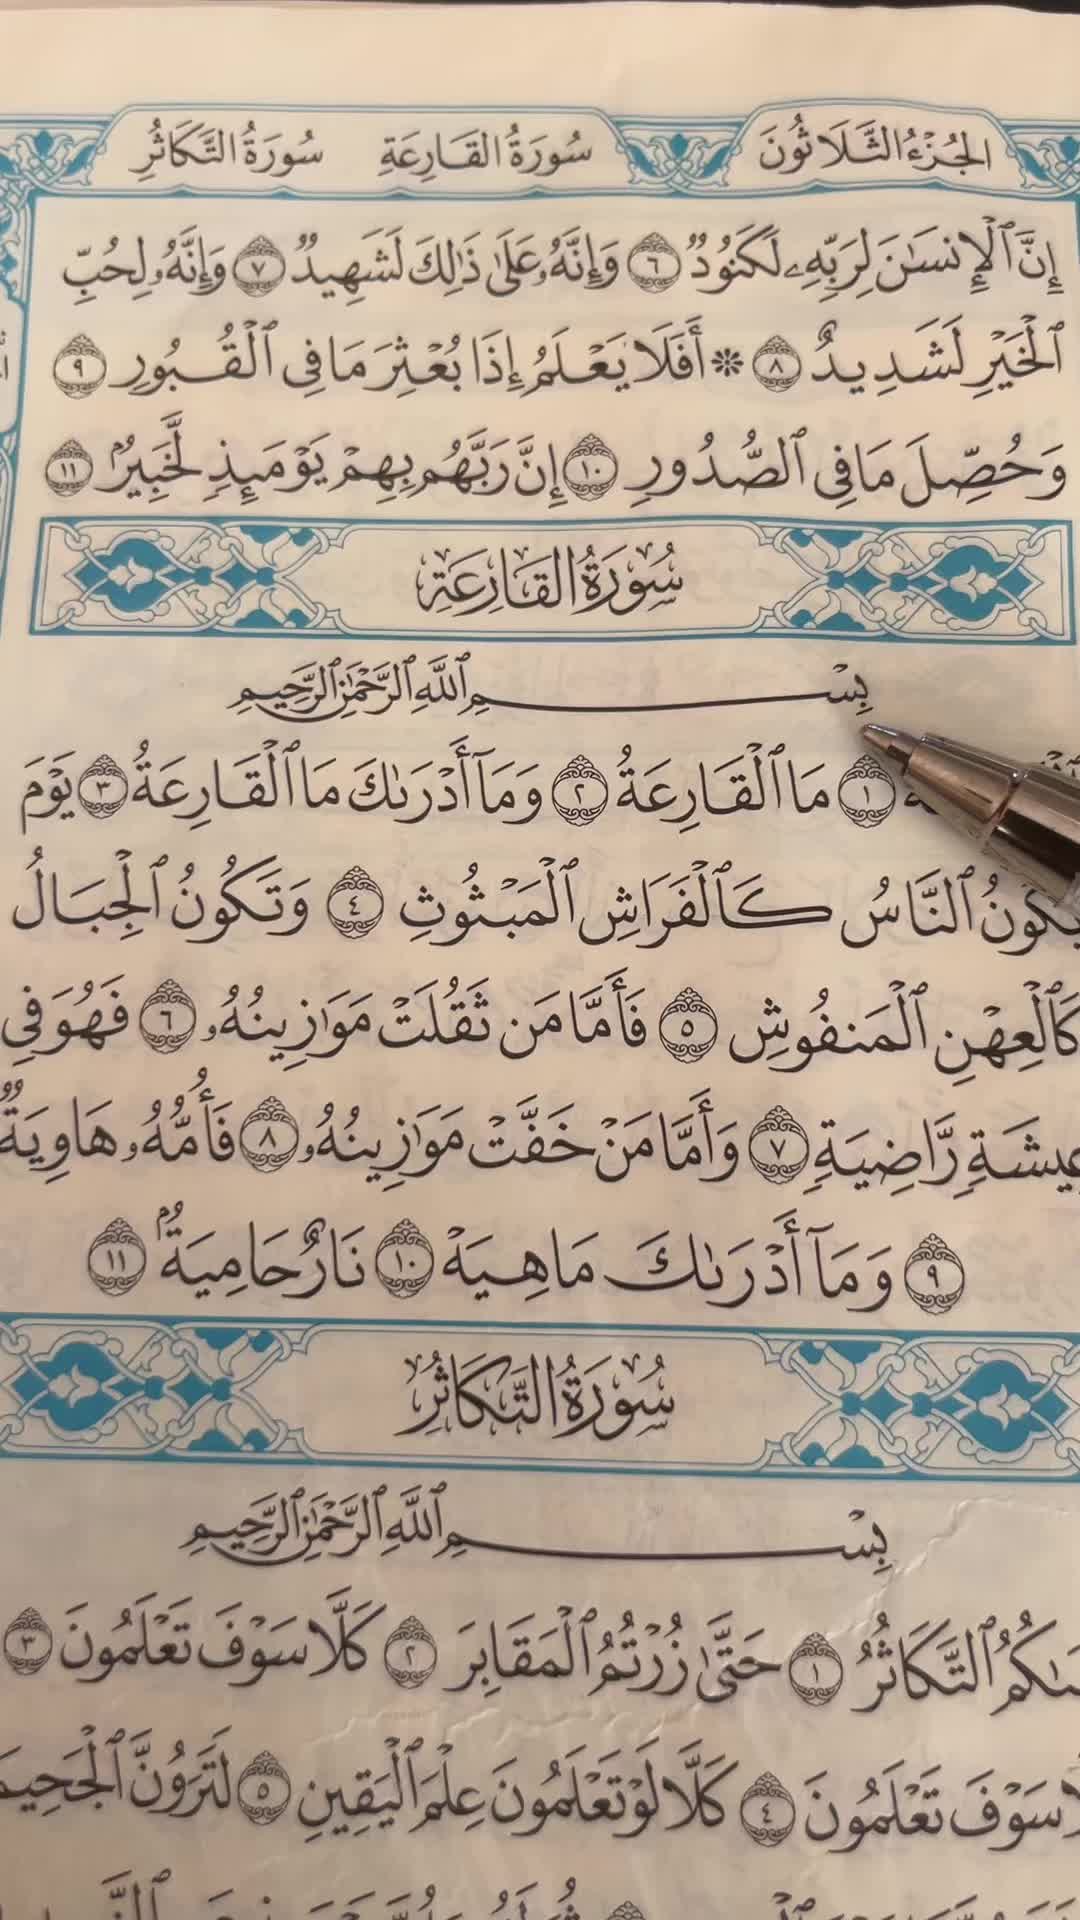 الجُزْءُ الثَّلَاثُونَ سُورَةُ القَارِعَةِ سُورَةُ التَّكَاثُرِ
إِنَّ ٱلْإِنسَـٰنَ لِرَبِّهِۦ لَكَنُودٌ ٦ وَإِنَّهُۥ عَلَىٰ ذَٰلِكَ لَشَهِيدٌ ٧ وَإِنَّهُۥ لِحُبِّ
ٱلْخَيْرِ لَشَدِيدٌ ٨ ۞ أَفَلَا يَعْلَمُ إِذَا بُعْثِرَ مَا فِى ٱلْقُبُورِ ٩
وَحُصِّلَ مَا فِى ٱلصُّدُورِ ١٠ إِنَّ رَبَّهُم بِهِمْ يَوْمَئِذٍ لَّخَبِيرٌۢ ١١
سُورَةُ القَارِعَةِ
بِسْمِ ٱللَّهِ ٱلرَّحْمَـٰنِ ٱلرَّحِيمِ
١ مَا ٱلْقَارِعَةُ ٢ وَمَآ أَدْرَىٰكَ مَا ٱلْقَارِعَةُ ٣ يَوْمَ
يَكُونُ ٱلنَّاسُ كَٱلْفَرَاشِ ٱلْمَبْثُوثِ ٤ وَتَكُونُ ٱلْجِبَالُ
كَٱلْعِهْنِ ٱلْمَنفُوشِ ٥ فَأَمَّا مَن ثَقُلَتْ مَوَٰزِينُهُۥ ٦ فَهُوَ فِى
عِيشَةٍ رَّاضِيَةٍ ٧ وَأَمَّا مَنْ خَفَّتْ مَوَٰزِينُهُۥ ٨ فَأُمُّهُۥ هَاوِيَةٌ
٩ وَمَآ أَدْرَىٰكَ مَا هِيَهْ ١٠ نَارٌ حَامِيَةٌۢ ١١
سُورَةُ التَّكَاثُرِ
بِسْمِ ٱللَّهِ ٱلرَّحْمَـٰنِ ٱلرَّحِيمِ
ٱلتَّكَاثُرُ ١ حَتَّىٰ زُرْتُمُ ٱلْمَقَابِرَ ٢ كَلَّا سَوْفَ تَعْلَمُونَ ٣
سَوْفَ تَعْلَمُونَ ٤ كَلَّا لَوْ تَعْلَمُونَ عِلْمَ ٱلْيَقِينِ ٥ لَتَرَوُنَّ ٱلْجَحِيمَ